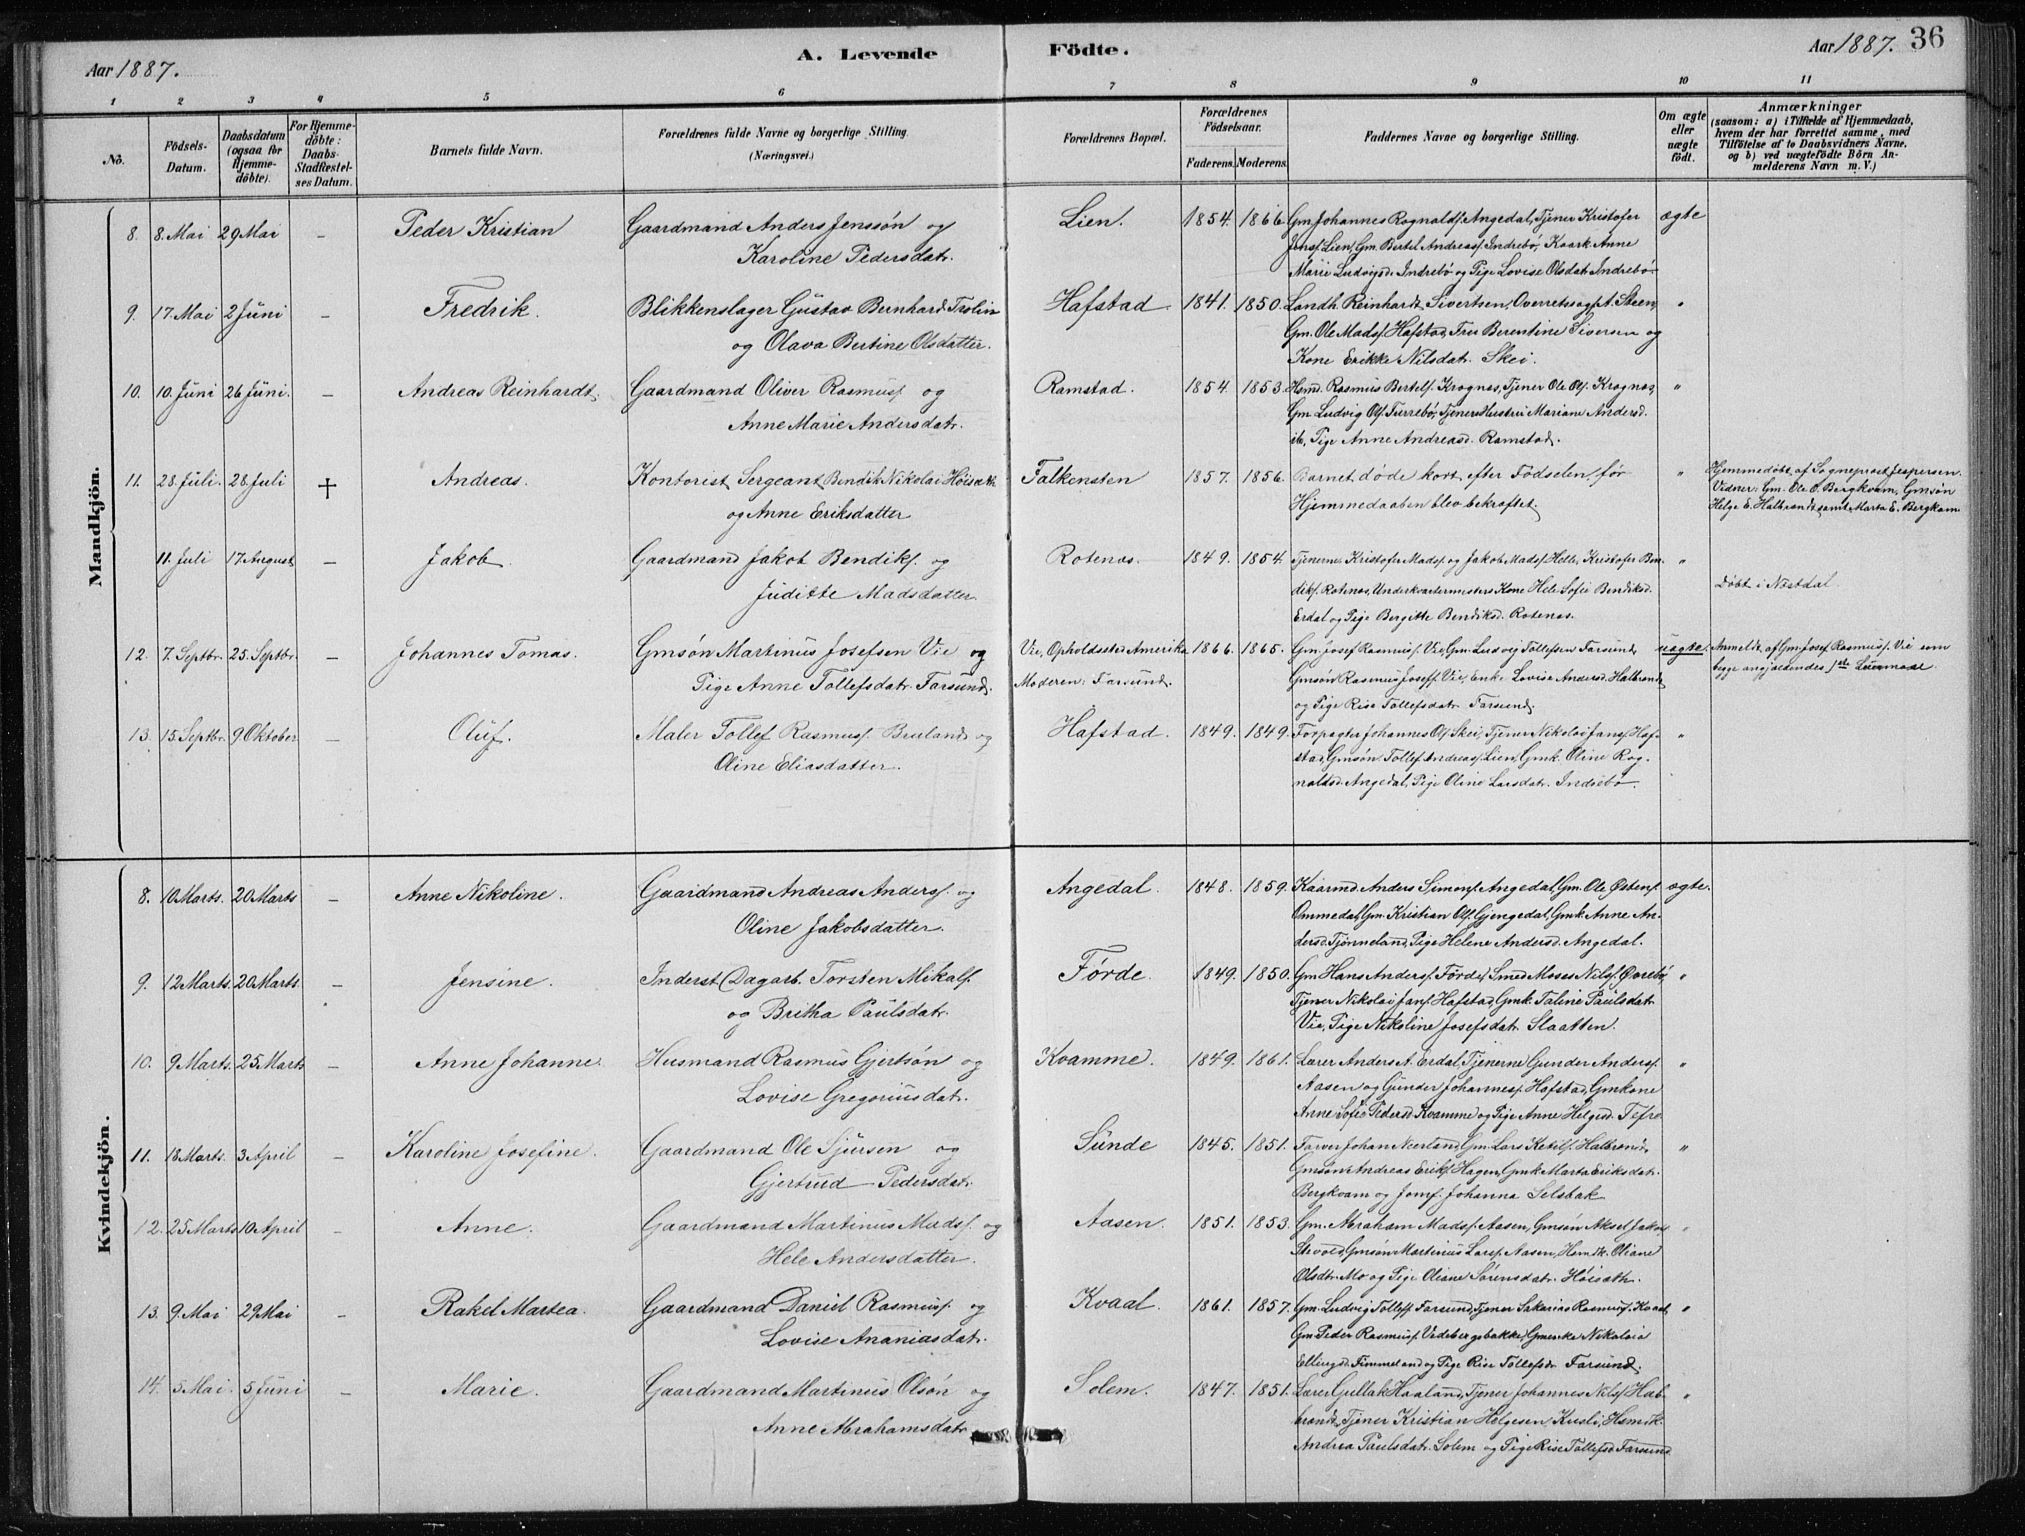 Aar 1887.
A. Levende Födte.
Aar 1887. 36
1 2 3 4 5 6 7 8 9 10 11
No.
Födsels-Datum.
Daabsdatum (ogsaa for Hjemme-döbte).
For Hjemme-döbte: Daabs-Stadfæstel-ses Datum.
Barnets fulde Navn.
Forældrenes fulde Navne og borgerlige Stilling. (Næringsvei.)
Forældrenes Bopæl.
Forældrenes Födselsaar.
Faderens. Moderens.
Faddernes Navne og borgerlige Stilling.
Om ægte eller uægte födt.
Anmærkninger (saasom: a) i Tilfælde af Hjemmedaab, hvem der har forrettet samme, med Tilföielse af to Daabsvidners Navne, og b) ved uægtefödte Börn An-melderens Navn m. V.)
Mandkjön.
8. 8. Mai 29 Mai – Peder Kristian Gaardmand Anders Jenssøn og Lien. 1854. 1866. Gm Johannes Rognaldsf. Angedal, Tjener Kristofer ægte
Karoline Pedersdatr. Jensf. Lien, Gm. Bertel Andreasf. Indrebø, Kaark. Anne
Marie Ludvigsd. Indrebø og Pige Lovise Olsdat. Indrebø
9. 17. Mai 2 Juni – Fredrik. Blikkenslager Gustav Bernhard Hafstad 1841. 1850. Landh. Reinhardt Sivertsen, Overretssagf. A. Steen, "
og Olava Bertine Olsdatter. Gm. Ole Madsf. Hafstad, Fru Berentine Siversen og
Kone Erikke Nilsdat. Skei.
10. 10. Juni 26 Juni. – Andreas Reinhardt. Gaardmand Oliver Rasmusf. og Ramstad. 1854. 1853. Hsmd. Rasmus Bertelf. Krognæs, Tjener Ole Olf. Krognæs, "
Anne Marie Andersdatr. Gm. Ludvig Olf. Furrebø, Tjeners Hustru Mariane Andersd.
ib, Pige Anne Andreasd. Ramstad.
11. 28. Juli. 28. Juli † Andreas. Kontorist, Sergeant Bendik Nikolai Høisæth Falkensten 1857. 1856. Barnet døde kort efter Fødselen, før " Hjemmedøbt af Sogneprest Jespersen.
og Anne Eriksdatter Hjemmedaaben blev bekræftet. Vidner: Gm. Ole O. Bergkvam, Gmsøn
Helge E. Halbrandt samt Marta E. Bergkvam
11. Juli 17 August – Jakob. Gaardmand Jakob Bendiksf. og Rotenæs. 1849. 1854. Tjenerne Kristofer Madsf. og Jakob Madsf. Helle, Kristofer Ben- "
Juditte Madsdatter. diksf. Rotenæs, Underkvartermesters Kone Hele Sofie Bendiksd. Døbt i Næstdal.
Erdal og Pige Bergitte Bendiksd. Rotenæs.
12. 7. Septbr. 25. Septbr. – Johannes Tomas. Gmsøn Martinus Josefsen Vie og Vie, Opholdssted: Amerika 1866. 1865. Gm. Josef Rasmusf. Vie, Gm. Ludvig Tollefsen Farsund, uægte. Anmeldt af Gm. Josef Rasmusf. Vie som
Pige Anne Tollefsdatr. Farsund. Moderen: Farsund. Gmsøn Rasmus Joseff. Vie, Enke Lovise Andersd. Halbrendt begge angjældendes 1ste Leiermaal.
og Pige Rise Tollefsdatr. Farsund.
13. 15. Septbr. 9 Oktober – Oluf. Maler Tollef Rasmusf. Bruland og Hafstad. 1849. 1849. Forpagter Johannes Olf. Skei, Tjener Nikolai Jansf. Haf- "
Oline Eliasdatter. stad, Gmsøn Tollef Andreasf. Lien, Gmk. Oline Rog-
naldsd. Angedal, Pige Oline Larsdatr. Indrebø.
Kvindekjön.
8. 10 Marts. 20 Marts – Anne Nikoline. Gaardmand Andreas Andersf. og Angedal. 1848. 1859. Kaarmd. Anders Simonsf. Angedal, Gm. Ole Østenf. ægte.
Oline Jakobsdatter. Ommedal, Gm. Kristian Olf. Gjengedal, Gmk. Anne An-
dersd. Tjønneland, Pige Helene Andersd. Angedal.
9. 12 Marts. 20 Marts. – Jensine. Inderst (Dagarb. Torsten Mikalf. Førde. 1849. 1850. Gm Hans Andersf. Førde, Smed Moses Nilsf. "
og Britha Paulsdatr. Tjener Nikolai Jansf. Hafstad, Gmk. Taline Paulsdatr.
Vie, Pige Nikoline Josefsdatr. Slaatten.
10. 9 Marts. 25 Marts – Anne Johanne. Husmand Rasmus Gjertsøn og Kvamme. 1849. 1861. Lærer Anders A. Erdal, Tjenerne Gunder Andersf. "
Lovise Gregoriusdatr. Aasen og Gunder Johannesf. Hafstad, Gmkone
Anne Sofie Pedersd. Kvamme og Pige Anne Helgesd. Tefre
11. 18 Marts. 3 April – Karoline Josefine. Gaardmand Ole Sjursen og Sunde 1845. 1851. Farver Johan Neerland, Gm. Lars Ketilsf. Halbrend, "
Gjertrud Pedersdatr. Gmsøn Andreas Erikf. Hagen, Gmk. Marta Eriksdatr.
Bergkvam og Jomf. Johanna Selsbak
12. 25 Marts 10 April – Anne. Gaardmand Martinus Madsf. og Aasen. 1851. 1853. Gm. Abraham Madsf. Aasen, Gmsøn Aksel Jakobf. "
Hele Andersdatter. Gmsøn Martinus Larsf. Aasen, Hsmdk. Oliane
Olsdtr. Mo og Pige Oliane Sørensdatr. Høisæth.
13. 9. Mai 29 Mai – Rakel Martea. Gaardmand Daniel Rasmusf. og Kvaal. 1861. 1857. Gm. Ludvig Tolleff. Farsund, Tjener Sakarias Rasmusf. Kvaal, "
Lovise Ananiasdatr. Gm. Peder Rasmusf. Vedebergsbakke, Gmenke Nikolaia
Ellingsd. Fimmeland og Pige Rise Tollefsdr. Farsund.
14. 5 Mai. 5 Juni – Marie. Gaardmand Martinus Olsøn og Solem. 1847. 1851. Lærer Gullak Haaland, Tjener Johannes Nilsf. Hal- "
Anne Abrahamsdatr. brandt, Tjener Kristian Helgesen Kusli, Hsmdk.
Andrea Paulsdatr. Solem og Pige Rise Tollefsd. Farsund